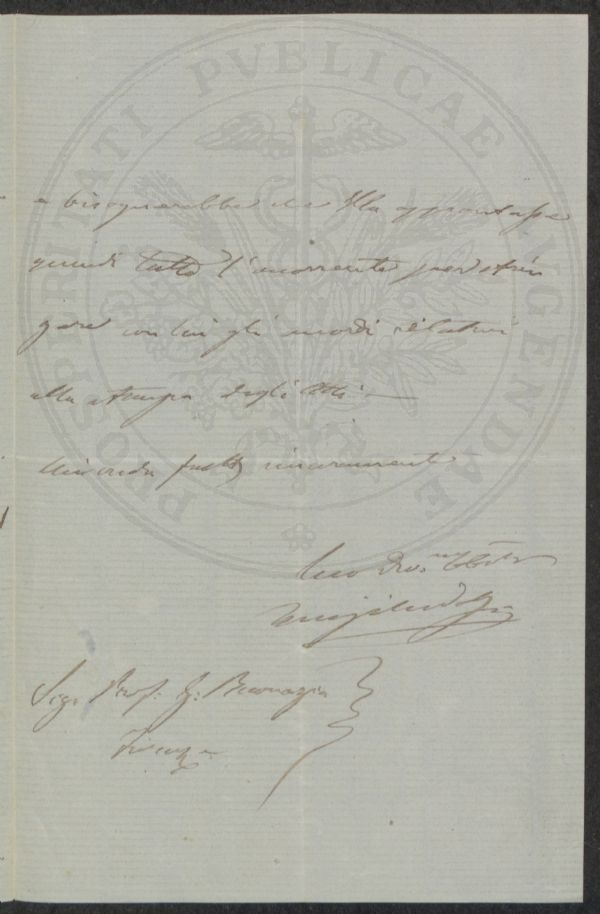 PROSPERITATI PVBLICAE AVGENDAE
e bisognerebbe che Ella approntasse
quindi tutto l'occorrente per strin
gere con lui gli accordi relativi
alla stampa degli Atti
Mi creda sinceramente
Suo Dev.
Sigr Prof. G.
Firenze